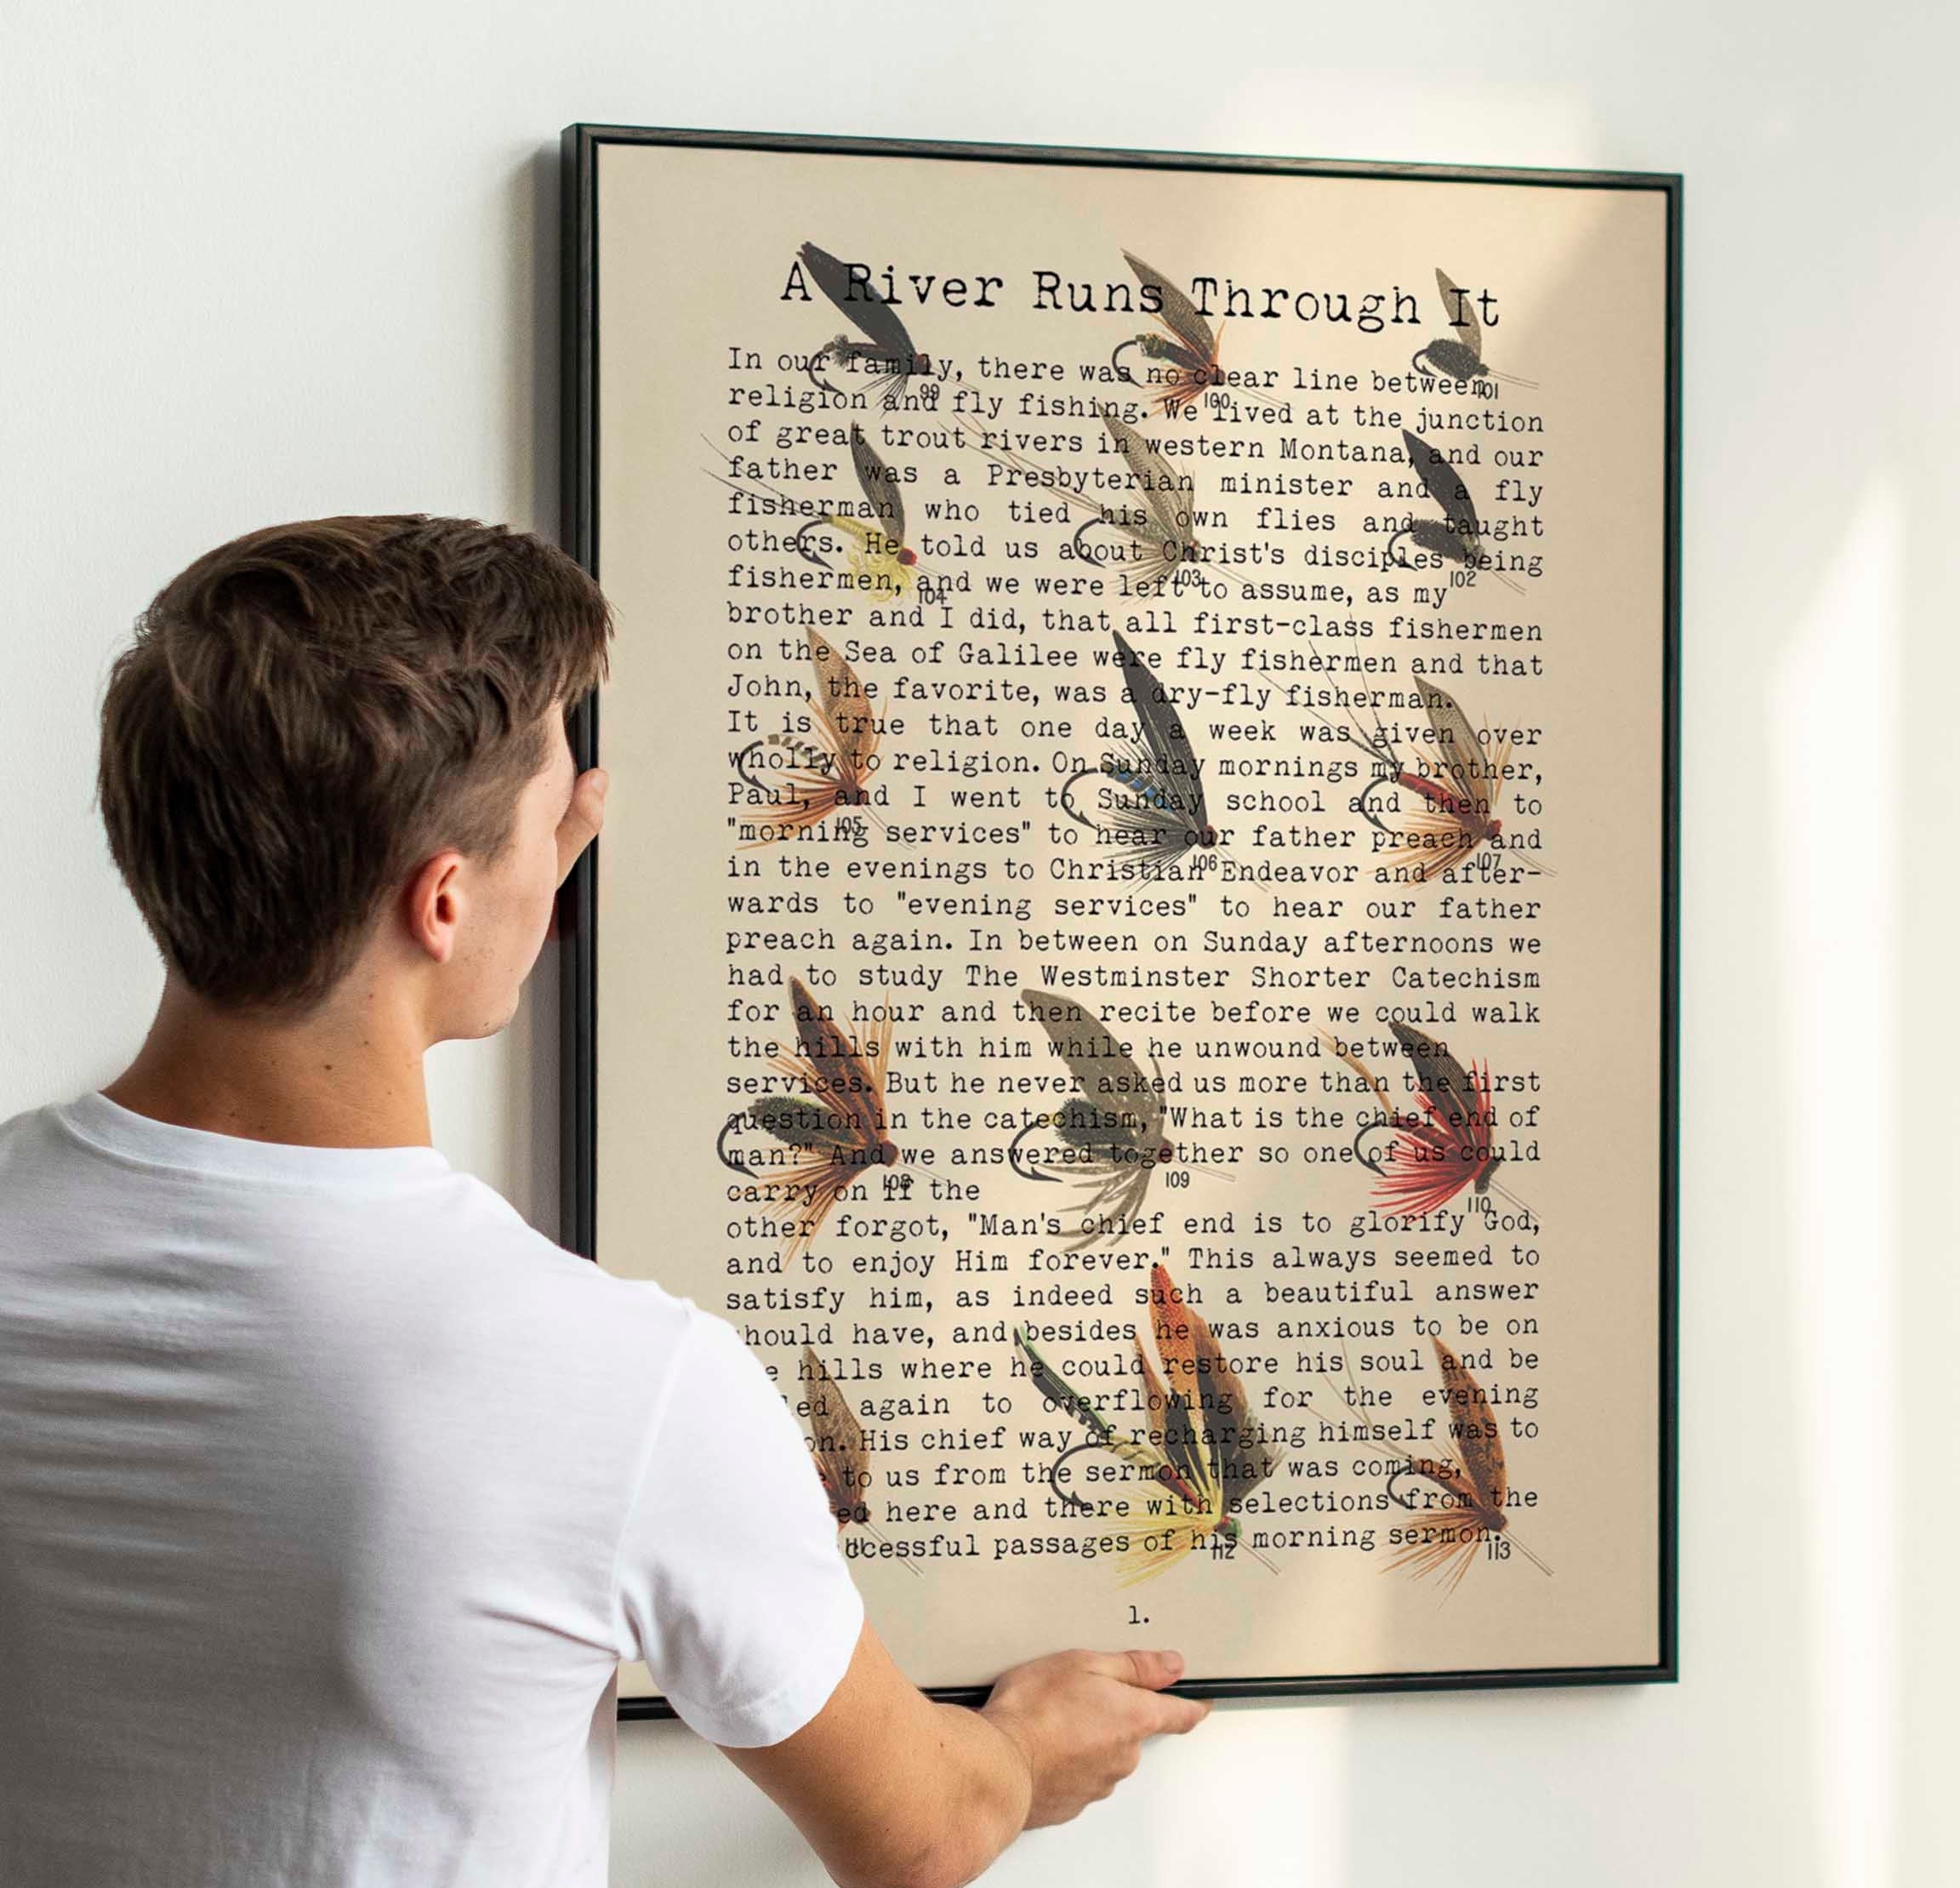 A River Runs Through It
In our family, there was no clear line between
religion and fly fishing. We lived at the junction
of great trout rivers in western Montana, and our
father was a Presbyterian minister and a fly
fisherman who tied his own flies and taught
others. He told us about Christ's disciples being
fishermen, and we were left to assume, as my
brother and I did, that all first-class fishermen
on the Sea of Galilee were fly fishermen and that
John, the favorite, was a dry-fly fisherman.
It is true that one day a week was given over
wholly to religion. On Sunday mornings my brother,
Paul, and I went to Sunday school and then to
"morning services" to hear our father preach and
in the evenings to Christian Endeavor and after-
wards to "evening services" to hear our father
preach again. In between on Sunday afternoons we
had to study The Westminster Shorter Catechism
for an hour and then recite before we could walk
the hills with him while he unwound between
services. But he never asked us more than the first
question in the catechism, "What is the chief end of
man?" And we answered together so one of us could
carry on if the
other forgot, "Man's chief end is to glorify God,
and to enjoy Him forever." This always seemed to
satisfy him, as indeed such a beautiful answer
hould have, and besides he was anxious to be on
e hills where he could restore his soul and be
led again to overflowing for the evening
on. His chief way of recharging himself was to
to us from the sermon that was coming,
ed here and there with selections from the
ccessful passages of his morning sermon.
1.
99
100
101
104
103
102
105
106
107
108
109
110
112
113